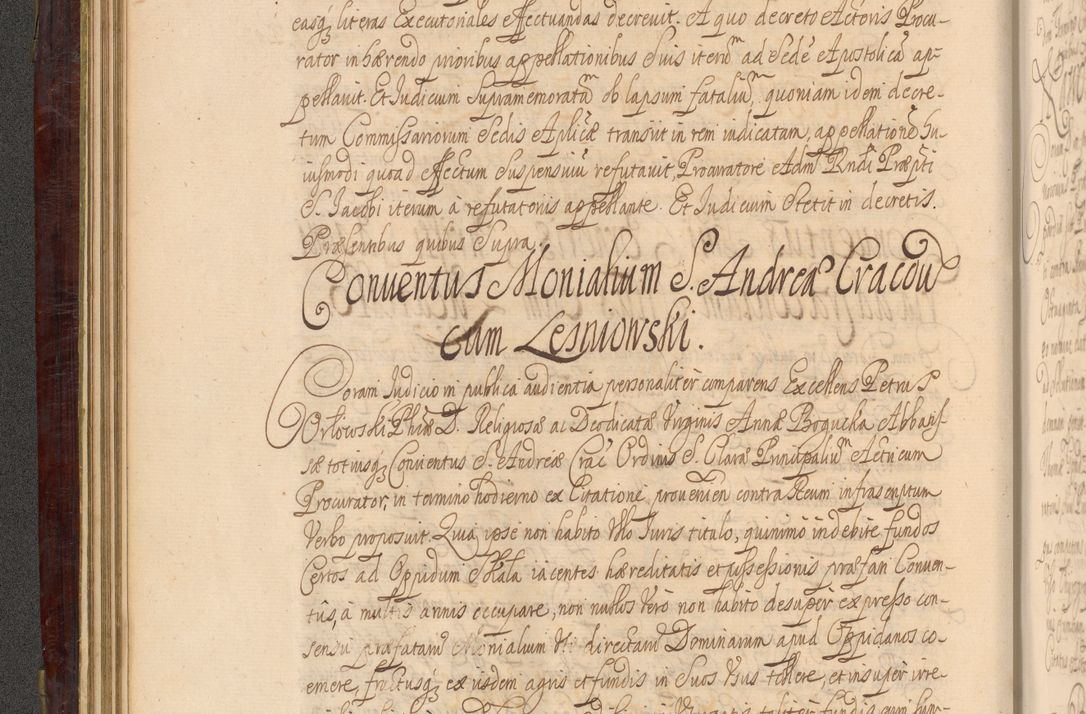 easq₃ literas Executoriales effectuandas decrevit. A quo decreto Actoris Procu-
rator inhærendo prioribus appellationibus Suis iterū ad Sedē Apostolicā ap-
pellavit. Et Judicium Supramemoratā ob lapsum fataliū, quoniam idem decre-
tum Commissariorum Sedis Aplicæ transivit in rem iudicatam, appellationē hu-
iusmodi quoad effectum Suspensivū refutavit, Procuratore Adm Rndi Præpti
S. Jacobi iterum à refutatoriis appellante. Et Judicium Stetit in decretis.
Præsentibus quibus Supra.
Conventus Monialium S. Andreæ Cracov
cum Lesniowski.
Coram Judicio in publica audientia personaliter comparens Excellens Petrus
Orłowski Phiæ D. Religiosæ ac Deodicatæ Virginis Annæ Bogucka Abbatis-
sæ totiusq₃ Conventus S. Andreæ Crac Ordinis S. Claræ Principaliū Actricum
Procurator, in termino hodierno ex Citatione provenien contra Reum infrascriptum
Verbo proposuit. Quia ipse non habito Ullo Juris titulo, quinimo indebite fundos
Certos ad Oppidum Skała iacentes hæreditatis et possessionis præfati Conven-
tûs, à multis annis occupare, non nullos Vero non habito desuper expresso con-
sensu præfatarū Monialium Uti directarū Dominarum apud Oppidanos co-
emere, fructusq₃ ex iisdem agris et fundis in Suos Usus tollere, et insuper irre-